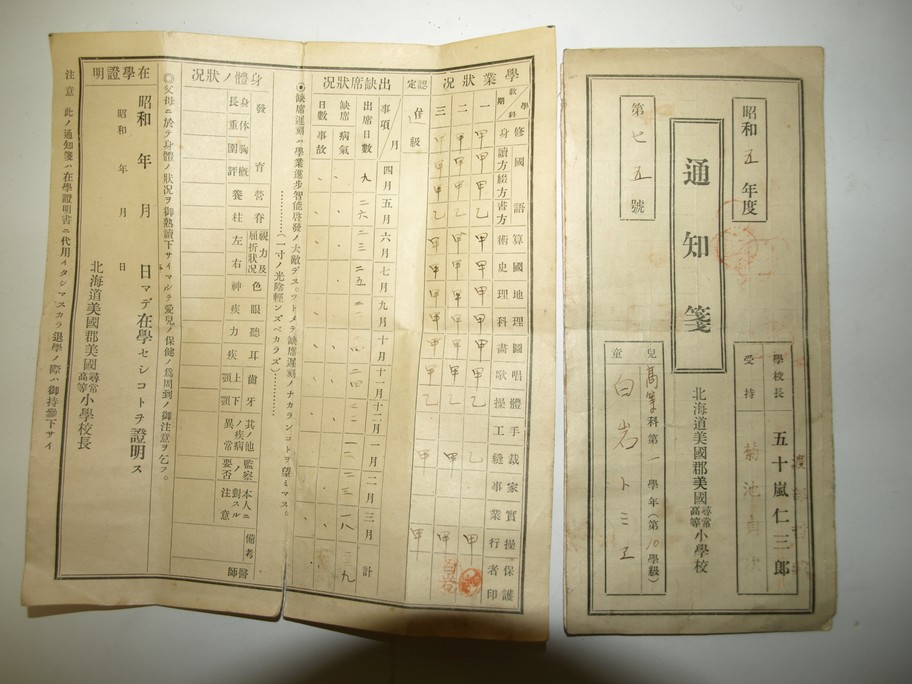 昭和五年度
通知箋
第七五號
北海道美國郡美國尋常高等小學校
學校長 五十嵐仁三郎
受持 菊池
兒童
高等科第一學年(第10學級)
白岩トミエ
學業狀況
學科 期 修身 國語 讀方 綴方 書方 算術 國史 地理 理科 圖畫 唱歌 體操 手工 裁縫 家事 實業 操行 保護者印
一 甲 甲 甲 乙 甲 甲 甲 甲 甲 甲 乙 乙 甲
二 甲 甲 甲 乙 甲 甲 甲 甲 甲 甲 乙 甲 甲
三 甲 甲 甲 乙 甲 甲 甲 甲 甲 甲 乙 甲 甲
認定
出缺席狀況
事項 月 四月 五月 六月 七月 九月 十月 十一月 十二月 一月 二月 三月 計
出席日數
缺席日數 病氣 事故
◉缺席遲刻ハ學業進步智能啓發ノ大敵デス。ツトメテ缺席遲刻ノナカランコトヲ望ミマス。
(一寸ノ光陰輕ンズベカラズ)
身體ノ狀況
發育 身長 体重 胸圍 概評
營養
脊柱
視力及屈折狀況 左 右
色神
眼疾
聽力
耳疾
齒牙 上顎 下顎
其ノ他ノ疾病異常
監察ノ要否
本人ニ對スル注意
備考
醫師
◎父母ニ於テ身體ノ狀況ヲ御熟讀下サイマシテ愛兒ノ保健ノ爲周到ノ御注意ヲ乞フ。
在學證明
昭和 年 月 日マデ在學セシコトヲ證明ス
昭和 年 月 日
北海道美國郡美國尋常高等小學校長
注意 此ノ通知箋ハ在學證明書ニ代用イタシマスカラ退學ノ際ハ御持參下サイ